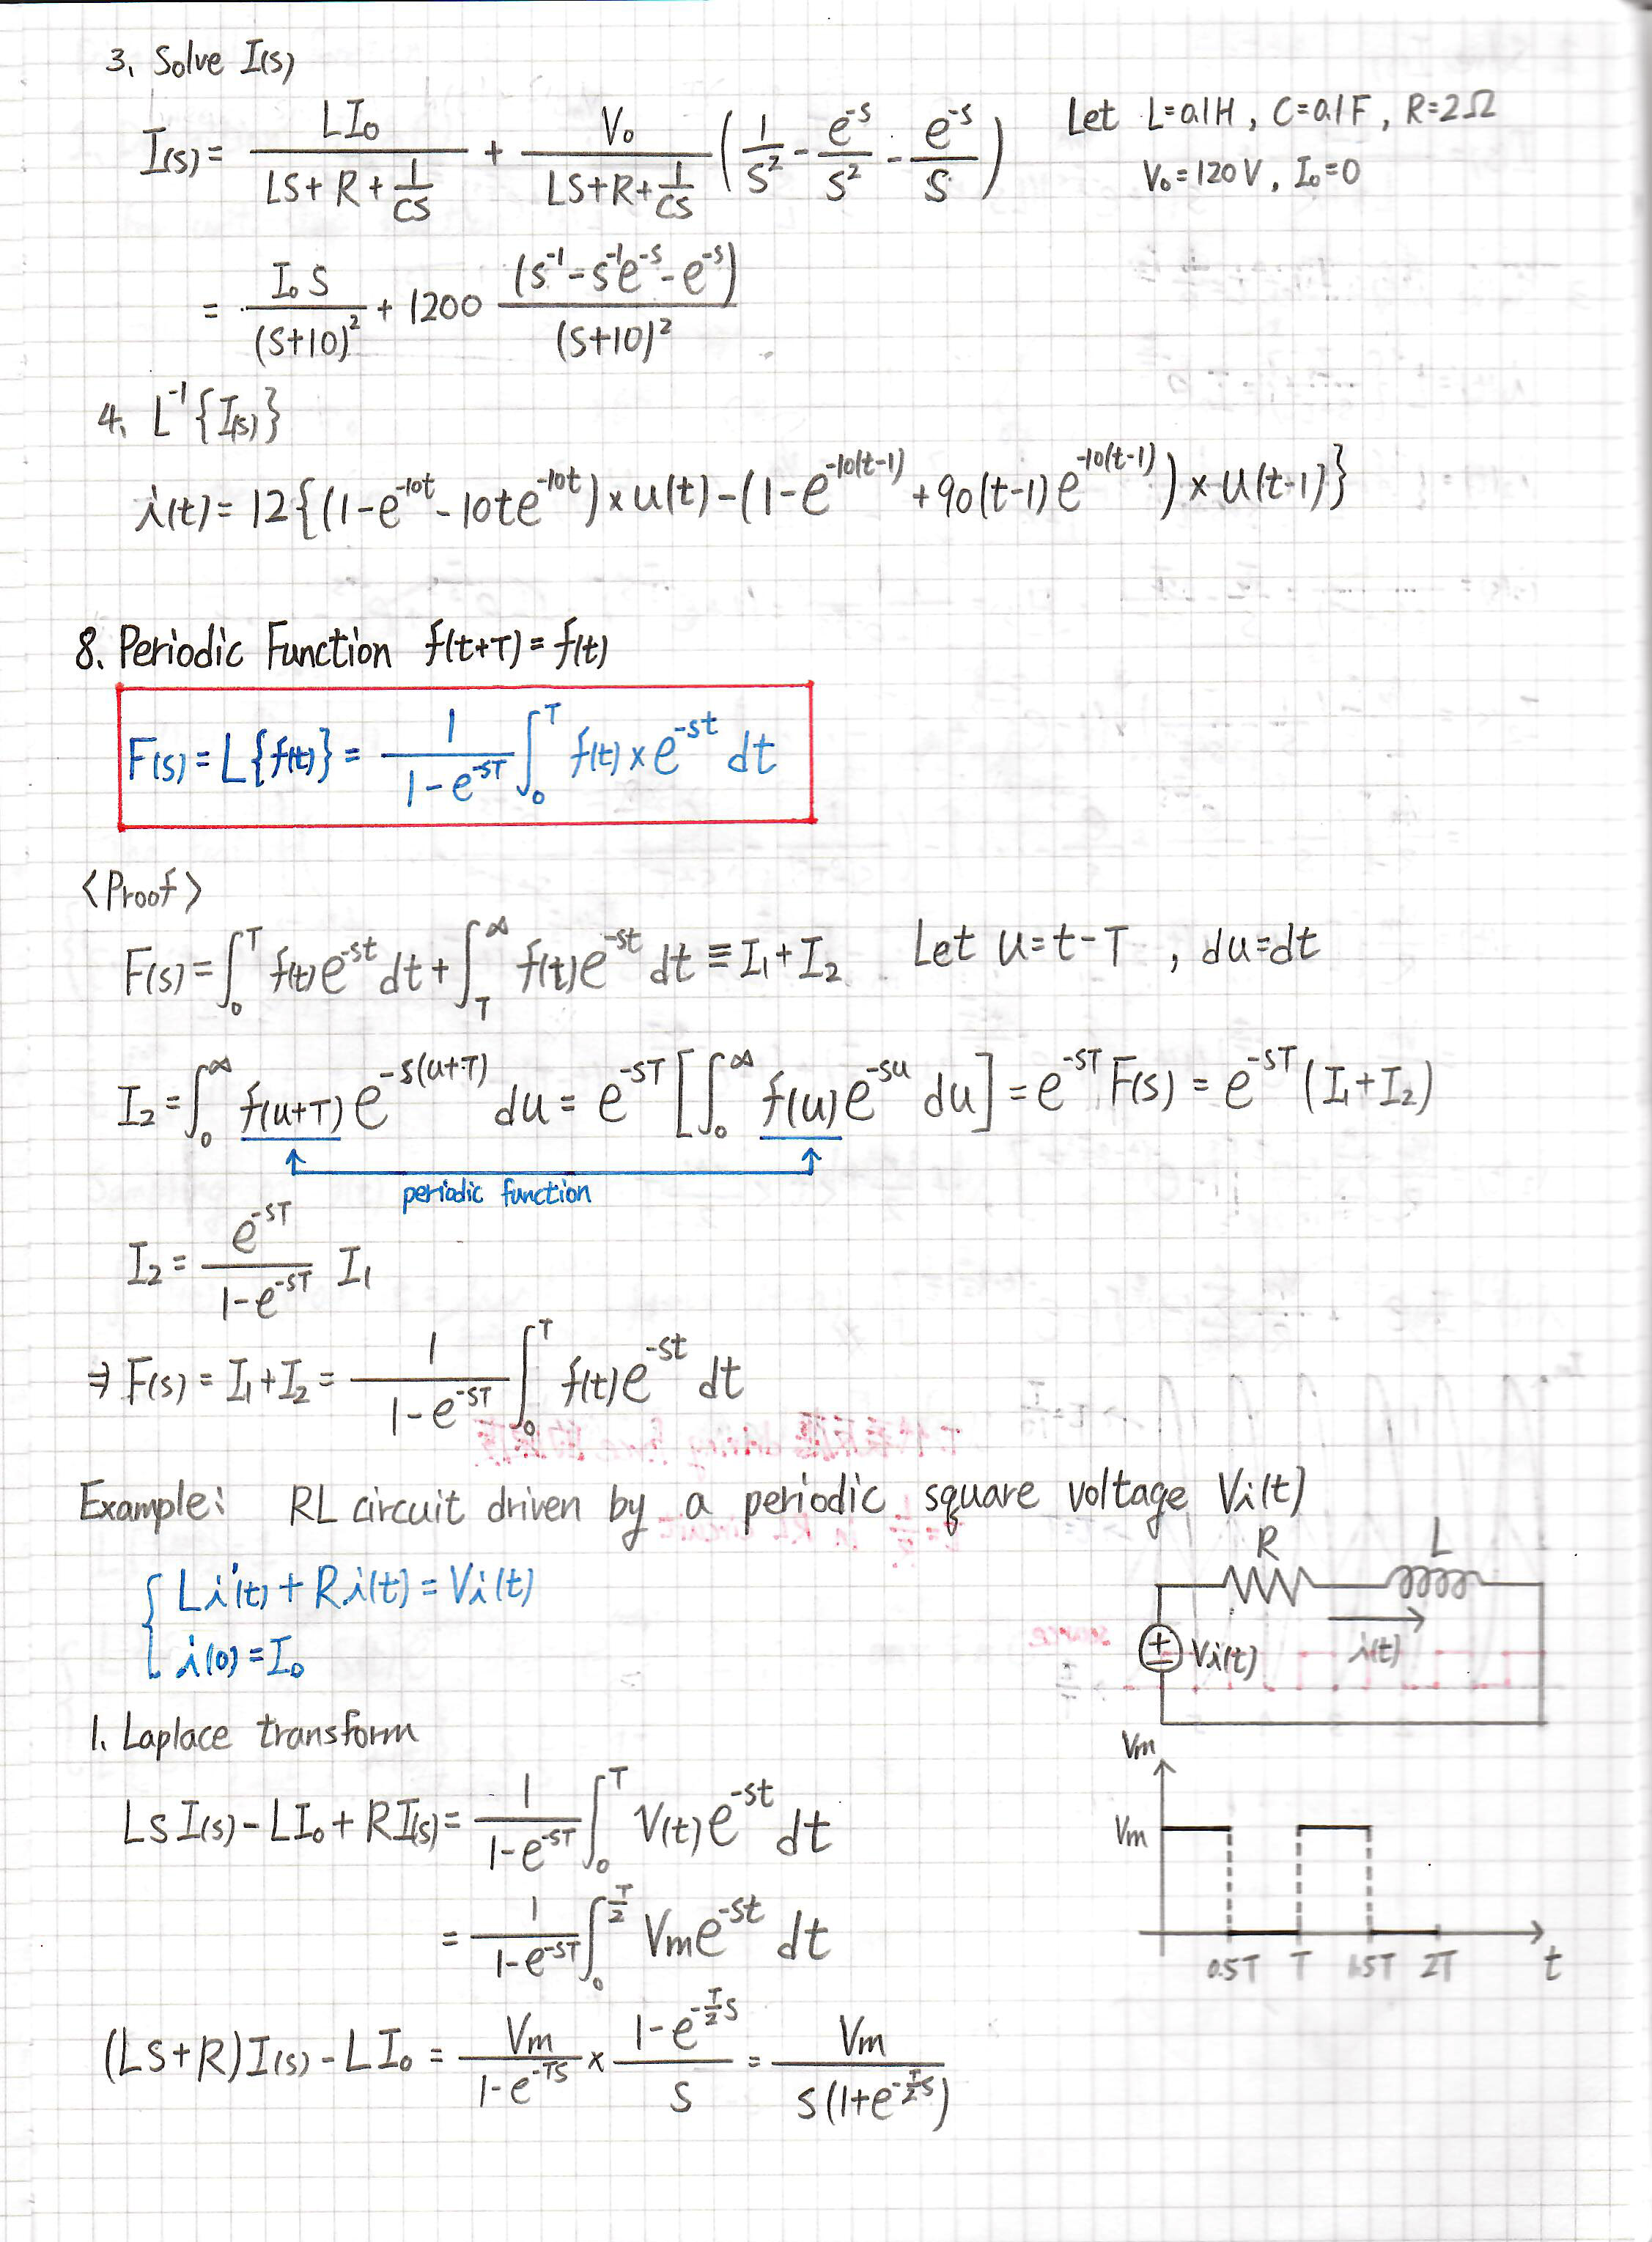 3. Solve I(s)
I(s) = LI₀ / (LS + R + 1/CS) + V₀ / (LS + R + 1/CS) (1/S² - e^-s/S² - e^-s/S)
Let L=0.1H, C=0.1F, R=2Ω
V₀=120V, I₀=0
= I₀S / (S+10)² + 1200 (s^-1 - s^-1 e^-s - e^-s) / (S+10)²
4. L^-1{I(s)}
i(t) = 12{(1-e^-10t - 10te^-10t) × u(t) - (1-e^-10(t-1) + 90(t-1)e^-10(t-1)) × u(t-1)}
8. Periodic Function f(t+T) = f(t)
F(s) = L{f(t)} = 1/(1-e^-sT) ∫₀^T f(t) × e^-st dt
<Proof>
F(s) = ∫₀^T f(t)e^-st dt + ∫_T^∞ f(t)e^-st dt ≡ I₁+I₂ Let u=t-T , du=dt
I₂ = ∫₀^∞ f(u+T) e^-s(u+T) du = e^-sT [∫₀^∞ f(u)e^-su du] = e^-sT F(s) = e^-sT (I₁+I₂)
periodic function
I₂ = e^-sT / (1-e^-sT) I₁
⇒ F(s) = I₁+I₂ = 1/(1-e^-sT) ∫₀^T f(t)e^-st dt
Example: RL circuit driven by a periodic square voltage Vi(t)
R L
{ Li'(t) + Ri(t) = Vi(t)
i(0) = I₀
Vi(t) i(t)
1. Laplace transform
Vm
LSI(s) - LI₀ + RI(s) = 1/(1-e^-sT) ∫₀^T V(t)e^-st dt
Vm
= 1/(1-e^-sT) ∫₀^T/2 Vme^-st dt
0.5T T 1.5T 2T t
(LS+R)I(s) - LI₀ = Vm/(1-e^-Ts) × (1-e^-T/2 s)/S = Vm / S(1+e^-T/2 s)